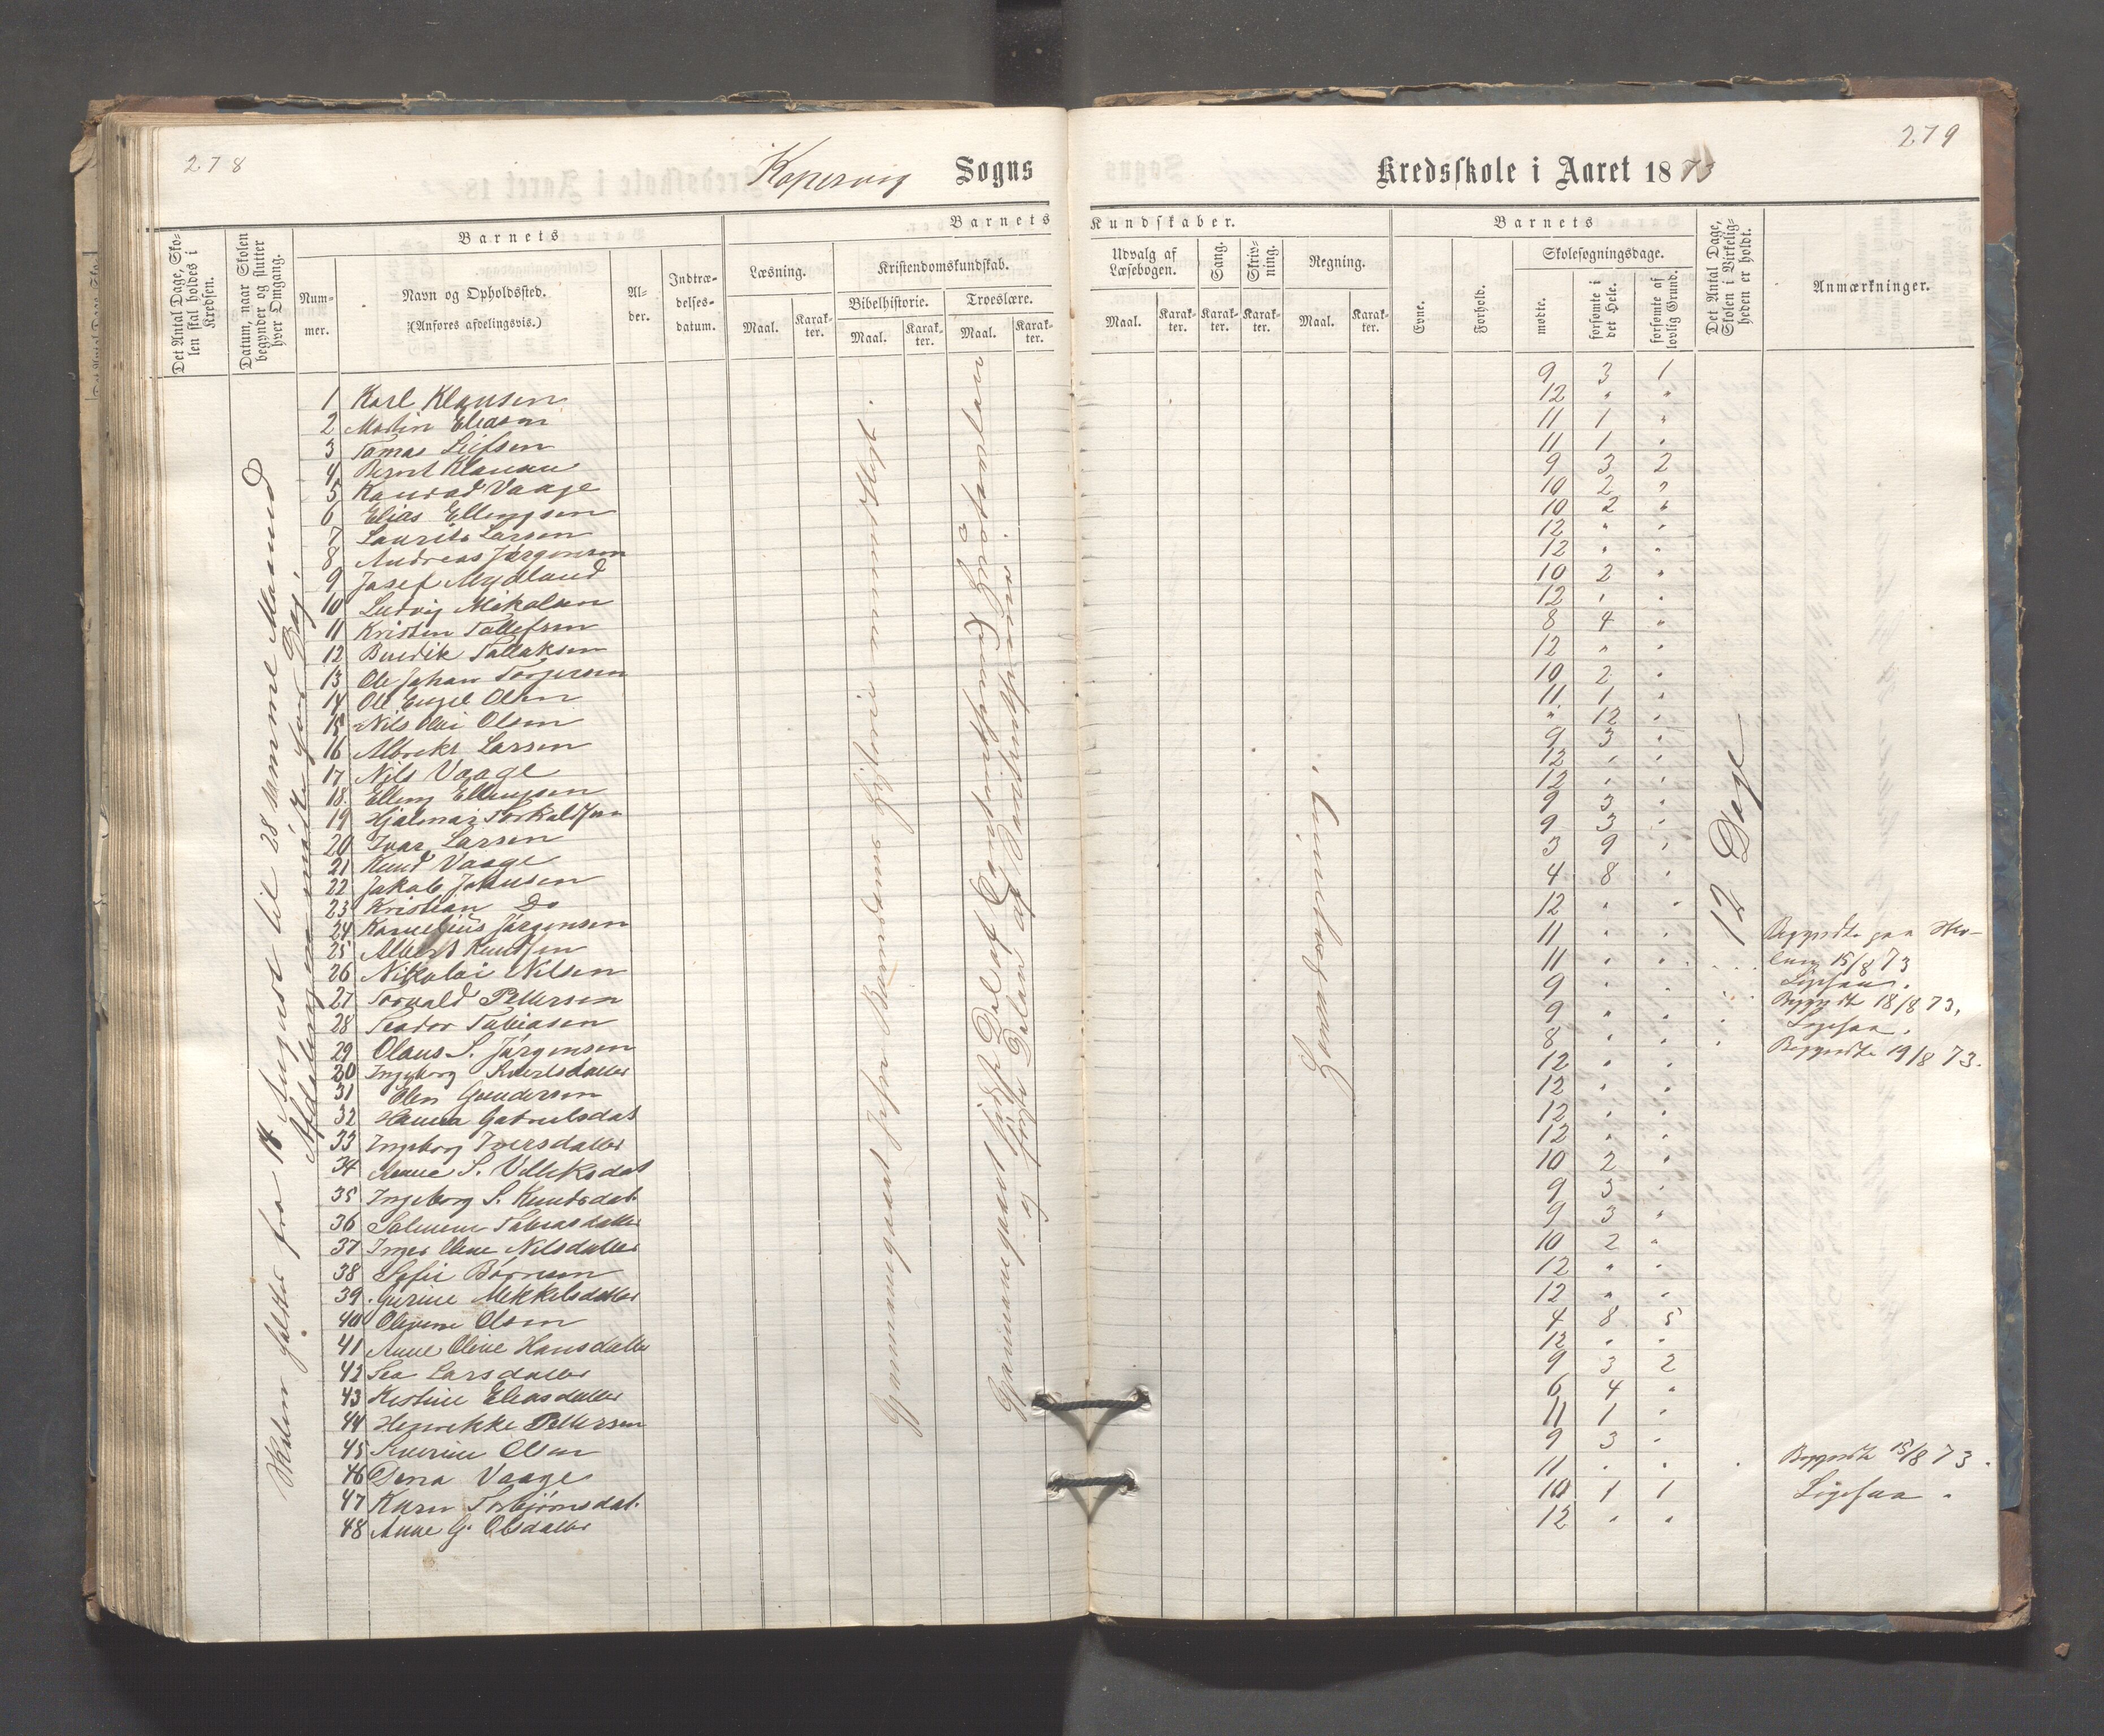 278
Kopervig Sogns
Kredsskole i Aaret 1873
279
Det Antal Dage, Sko-
len skal holdes i
Kredsen.
Datum, naar Skolen
begynder og slutter
hver Omgang.
Barnets
Num-
mer.
Navn og Opholdssted.
(Anføres afdelingsvis.)
Al-
der.
Indtræ-
delses-
datum.
Barnets
Læsning.
Maal.
Karak-
ter.
Kristendomskundskab.
Bibelhistorie.
Maal.
Karak-
ter.
Troeslære.
Maal.
Karak-
ter.
Kundskaber.
Udvalg af
Læsebogen.
Maal.
Karak-
ter.
Sang.
Karak-
ter.
Skriv-
ning.
Karak-
ter.
Regning.
Maal.
Karak-
ter.
Barnets
Evne.
Forhold.
Skolesøgningsdage.
mødte.
forsømte i
det Hele.
forsømte af
lovlig Grund.
Det Antal Dage,
Skolen i Virkelig-
heden er holdt.
Anmærkninger.
Skolen holdtes fra 14 August til 28 samme Maaned
Afdelingen mødte hver Dag.
1 Karl Klausen 9 3 1
2 Martin Eliasen 12 " "
3 Tomas Leifsen 11 1 "
4 Berent Klausen 11 1 "
5 Konrad Vaage 9 3 2
6 Elias Ellingsen 10 2 "
7 Laurits Larsen 10 2 "
8 Andreas Jørgensen 12 " "
9 Josef Mydland 12 " "
10 Ludvig Mikalsen 10 2 "
11 Kristen Tollefsen 12 " "
12 Bendik Tollaksen 8 4 "
13 Ole Johan Torgersen 12 " "
14 Ole Engel Olsen 10 2 "
15 Nils Olai Olsen 11 1 "
16 Albrekt Larsen " 12 "
17 Nils Vaage 9 3 "
18 Elling Ellingsen 12 " "
19 Hjalmar Torkildsen 12 " "
20 Ivar Larsen 9 3 "
21 Knud Vaage 9 3 "
22 Jakob Johnsen 3 9 "
23 Kristian Do 4 8 "
24 Kornelius Jørgensen 12 " "
25 Albert Knudsen 11 " " Begyndte paa Sko-
len 15/8 73
26 Nikolai Nilsen 11 " " Ligesaa.
27 Torvald Pettersen 9 " " Begyndte 18/8 73.
28 Teodor Tobiasen 9 " " Ligesaa.
29 Olaus S. Jørgensen 8 " " Begyndte 19/8 73.
30 Ingeborg Sivertsdatter 12 " "
31 Elen Gundersen 12 " "
32 Hanna Gabrielsdat 12 " "
33 Ingeborg Iversdatter 12 " "
34 Anne S. Villiksdat 10 2 "
35 Ingeborg S. Knudsdat. 9 3 "
36 Salmine Tobiasdatter 9 3 "
37 Inger Oline Nilsdatter 10 2 "
38 Sofie Børresen 12 " "
39 Gurine Mikkelsdatter 12 " "
40 Olevine Olsen 4 8 5
41 Anne Oline Hansdatter 12 " "
42 Lea Larsdatter 9 3 2
43 Kistine Eliasdatter 6 4 "
44 Henrikke Pettersen 11 1 "
45 Severine Olsen 9 3 "
46 Dena Vaage 11 " " Begyndte 15/8 73.
47 Karen Torbjørnsdat. 10 1 1 Ligesaa.
48 Anne G. Olsdatter 12 " "
12 Dage